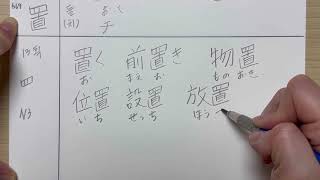 置
둘 お く
(치) チ
13획
置く 前置き 物置
お まえ お もの おき
罒
N3
位置 設置 放置
い ち せっ ち ほう